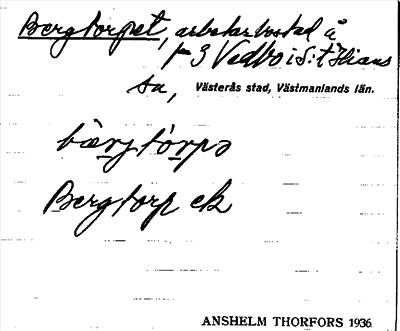 Bergtorpet, arbetarbostad å
1 3 Vedbo i S:t Ilians
sn, Västerås stad, Västmanlands län.
bærjtórpə
Bergtorp ek
ANSHELM THORFORS 1936